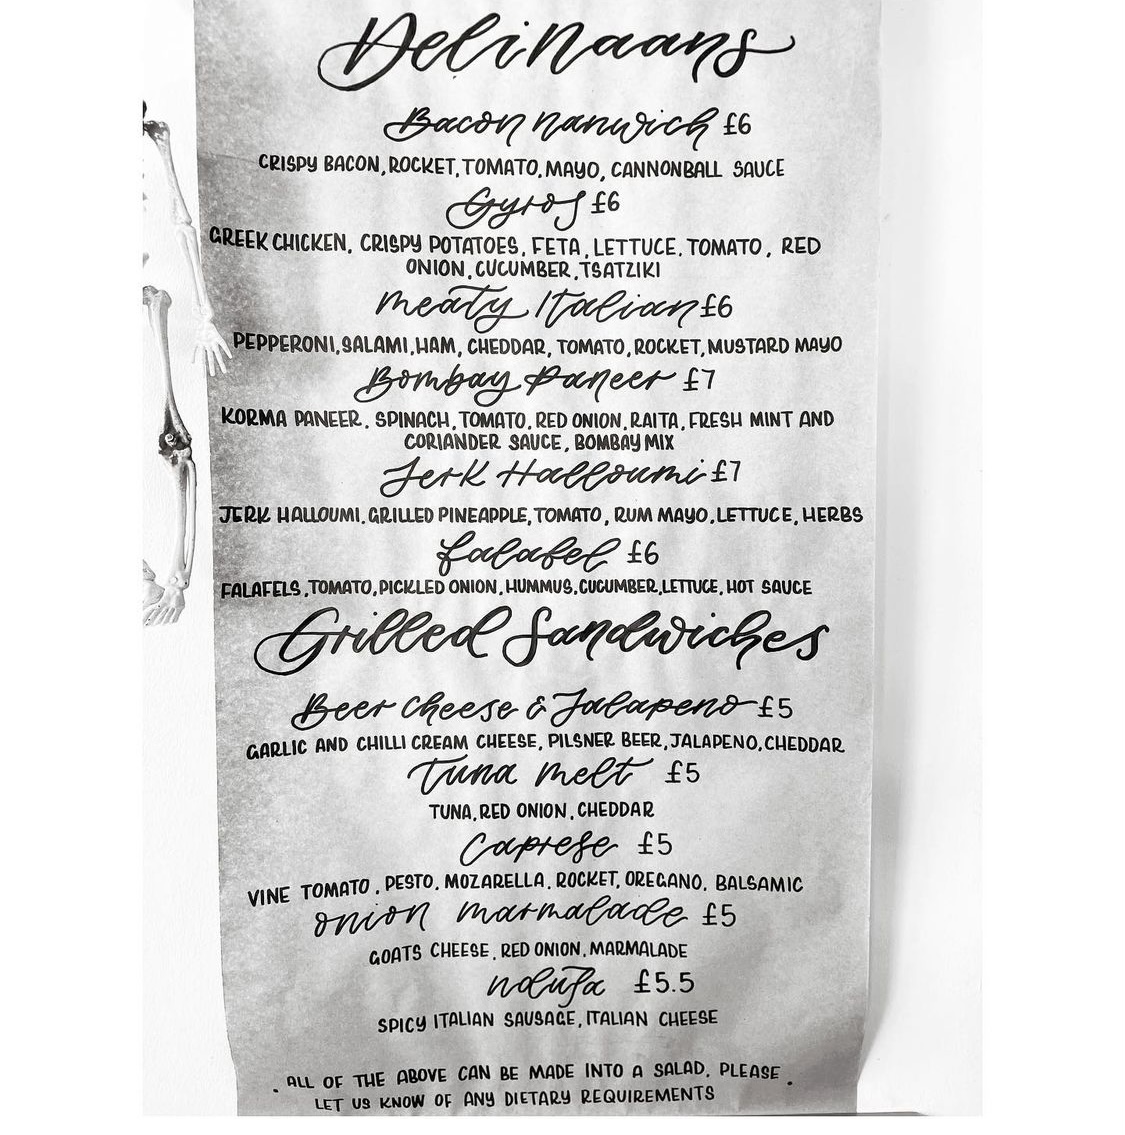 Deli Naans
Bacon nanwich £6
CRISPY BACON, ROCKET, TOMATO, MAYO, CANNONBALL SAUCE
Gyros £6
GREEK CHICKEN, CRISPY POTATOES, FETA, LETTUCE, TOMATO, RED
ONION, CUCUMBER, TSATZIKI
meaty Italian £6
PEPPERONI, SALAMI, HAM, CHEDDAR, TOMATO, ROCKET, MUSTARD MAYO
Bombay Paneer £7
KORMA PANEER, SPINACH, TOMATO, RED ONION, RAITA, FRESH MINT AND
CORIANDER SAUCE, BOMBAY MIX
Jerk Halloumi £7
JERK HALLOUMI, GRILLED PINEAPPLE, TOMATO, RUM MAYO, LETTUCE, HERBS
falafel £6
FALAFELS, TOMATO, PICKLED ONION, HUMMUS, CUCUMBER, LETTUCE, HOT SAUCE
Grilled Sandwiches
Beer cheese & Jalapeno £5
GARLIC AND CHILLI CREAM CHEESE, PILSNER BEER, JALAPENO, CHEDDAR
Tuna melt £5
TUNA, RED ONION, CHEDDAR
Caprese £5
VINE TOMATO, PESTO, MOZARELLA, ROCKET, OREGANO, BALSAMIC
onion marmalade £5
GOATS CHEESE, RED ONION, MARMALADE
nduja £5.5
SPICY ITALIAN SAUSAGE, ITALIAN CHEESE
. ALL OF THE ABOVE CAN BE MADE INTO A SALAD, PLEASE .
LET US KNOW OF ANY DIETARY REQUIREMENTS